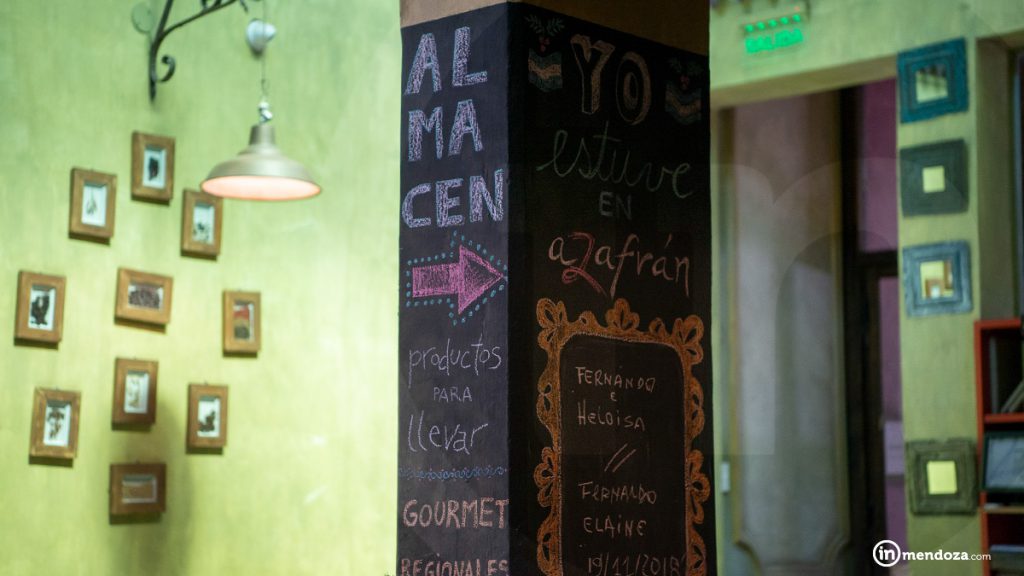 AL
MA
CEN
productos
PARA
llevar
GOURMET
REGIONALES
YO
estuve
EN
aZafrán
FERNANDO
E
HELOISA
//
FERNALDO
ELAINE
19/11/2018
SALIDA
inmendoza.com